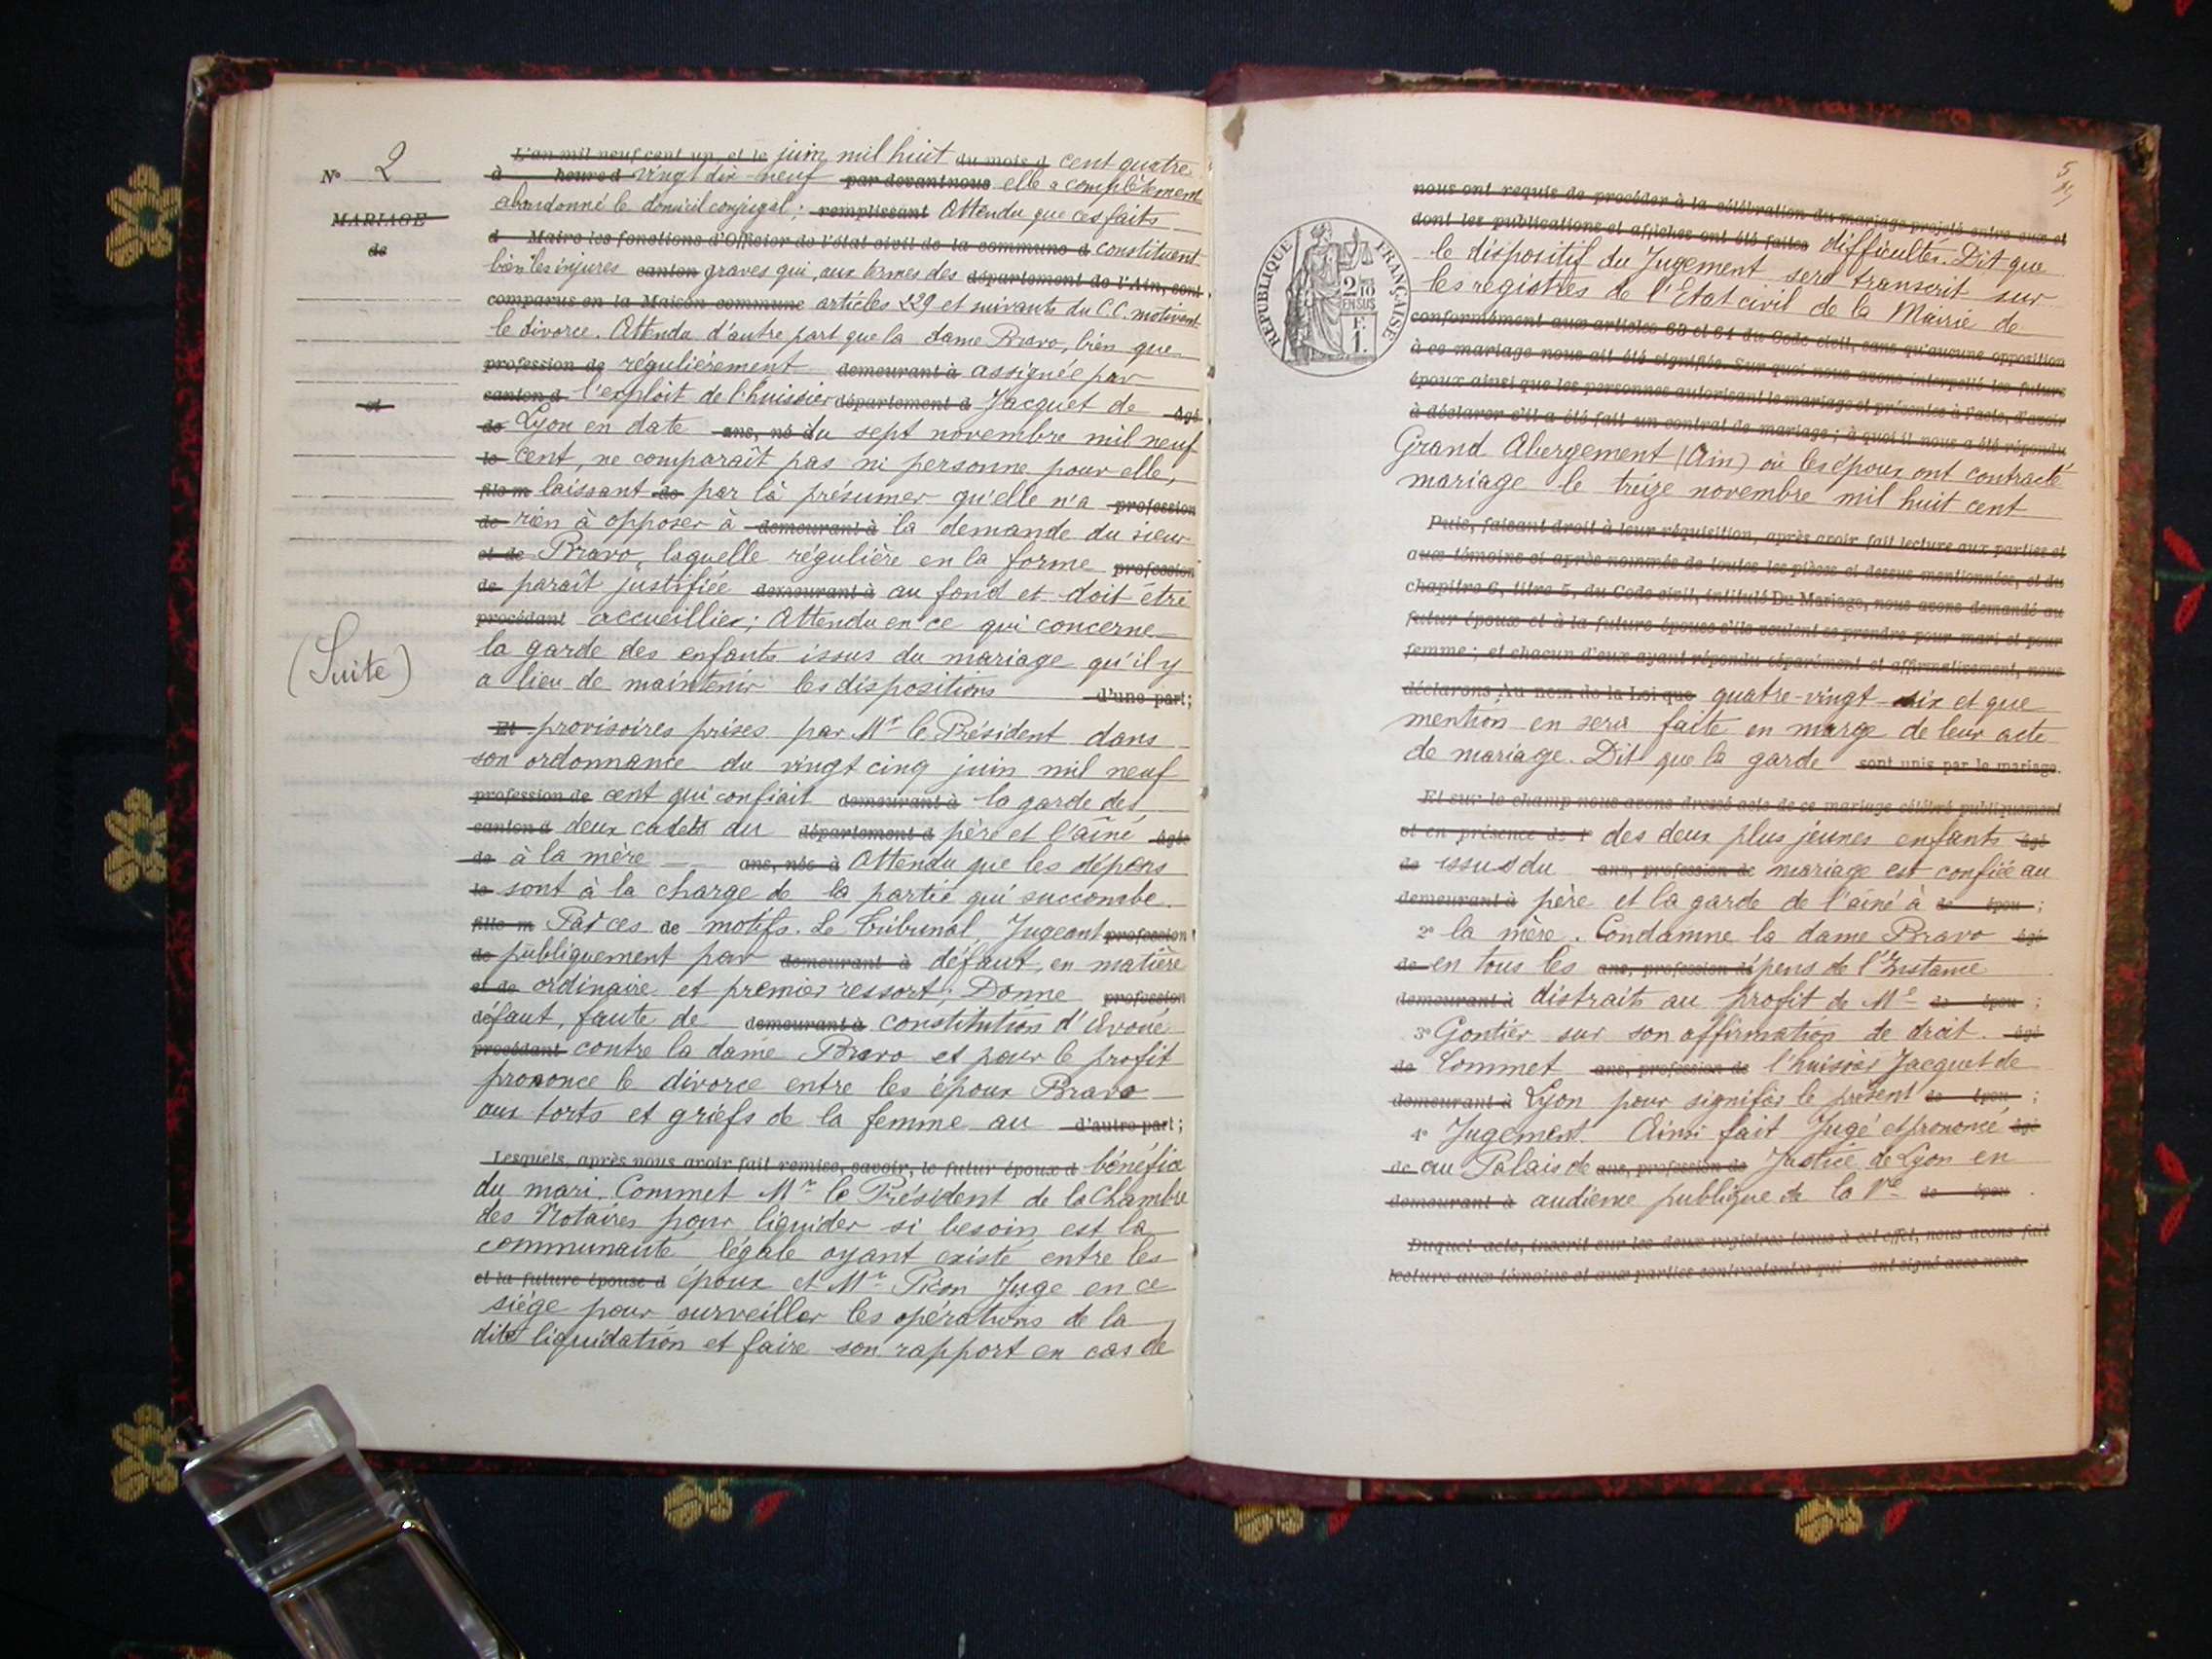 N° 2
MARIAGE
de
et
(Suite)
L'an mil neuf cent un et le juin mil huit du mois d cent quatre
à heure d vingt dix-neuf par devant nous elle a complètement
abandonné le domicil conjugal; remplissant Attendu que ces faits
d Maire les fonctions d'Officier de l'état civil de la commune d constituent
bien les injures canton graves qui, aux termes des département de l'Ain, sont
comparus en la Maison commune articles 229 et suivants du C.C. motivent
le divorce. Attendu d'autre part que la dame Bravo, bien que
profession de régulièrement demeurant à assignée par
canton d l'exploit de l'huissier département d Jacquet de âgé
de Lyon en date ans, né à du sept novembre mil neuf
le cent, ne comparaît pas ni personne pour elle,
fils m laissant de par là présumer qu'elle n'a profession
de rien à opposer à demeurant à la demande du sieur
et de Bravo laquelle régulière en la forme profession
de paraît justifiée demeurant à au fond et doit être
procédant accueillie; Attendu en ce qui concerne
la garde des enfants issus du mariage qu'il y
a lieu de maintenir les dispositions d'une part;
Et provisoires prises par Mr le Président dans
son ordonnance du vingt cinq juin mil neuf
profession de cent qui confiait demeurant à la garde des
canton d deux cadets au département d père et l'aîné âgée
de à la mère ans, née à Attendu que les dépens
le sont à la charge de la partie qui succombe.
fille m Par ces de motifs. Le Tribunal, Jugeant profession
de publiquement par demeurant à défaut, en matière
et de ordinaire et premier ressort; Donne profession
défaut, faute de demeurant à constitution d'avoué
procédant contre la dame Bravo et pour le profit
prononce le divorce entre les époux Bravo
aux torts et griefs de la femme au d'autre part;
Lesquels, après nous avoir fait remise, savoir, le futur époux d bénéfice
du mari. Commet Mr le Président de la Chambre
des Notaires pour liquider si besoin est la
communauté légale ayant existé entre les
et la future épouse d époux et Mr Piéon Juge en ce
siège pour surveiller les opérations de la
dite liquidation et faire son rapport en cas de
5
RÉPUBLIQUE FRANÇAISE
2/10 EN SUS
F. 1.
nous ont requis de procéder à la célébration du mariage projeté entre eux et
dont les publications et affiches ont été faites difficultés. Dit que
le dispositif du Jugement sera transcrit sur
les registres de l'Etat civil de la Mairie de
conformément aux articles 63 et 64 du Code civil, sans qu'aucune opposition
à ce mariage nous ait été signifiée. Sur quoi nous avons interpellé les futurs
époux ainsi que les personnes autorisant le mariage et présentes à l'acte, d'avoir
à déclarer s'il a été fait un contrat de mariage; à quoi il nous a été répondu
Grand Abergement (Ain) où les époux ont contracté
mariage le treize novembre mil huit cent
Puis, faisant droit à leur réquisition, après avoir fait lecture aux parties et
aux témoins ci après nommés de toutes les pièces ci dessus mentionnées, et du
chapitre 6, titre 5, du Code civil, intitulé Du Mariage, nous avons demandé au
futur époux et à la future épouse s'ils veulent se prendre pour mari et pour
femme; et chacun d'eux ayant répondu séparément et affirmativement, nous
déclarons Au nom de la Loi que quatre-vingt-six et que
mention en sera faite en marge de leur acte
de mariage. Dit que la garde sont unis par le mariage.
Et sur le champ nous avons dressé acte de ce mariage célébré publiquement
et en présence de 1° des deux plus jeunes enfants âgé
de issus du ans, profession de mariage est confiée au
demeurant à père et la garde de l'aîné à de épou ;
2° la mère. Condamne la dame Bravo âgé
de en tous les ans, profession dépens de l'Instance
demeurant à distraits au profit de Me de épou ;
3° Gontier sur son affirmation de droit. âgé
de Commet ans, profession de l'huissier Jacquet de
demeurant à Lyon pour signifier le présent de épou ;
4° Jugement. Ainsi fait Jugé et prononcé âgé
de au Palais de ans, profession de Justice de Lyon en
demeurant à audience publique de la 1re de épou .
Duquel acte, inscrit sur les deux registres tenus à cet effet, nous avons fait
lecture aux témoins et aux parties contractantes qui ont signé avec nous.